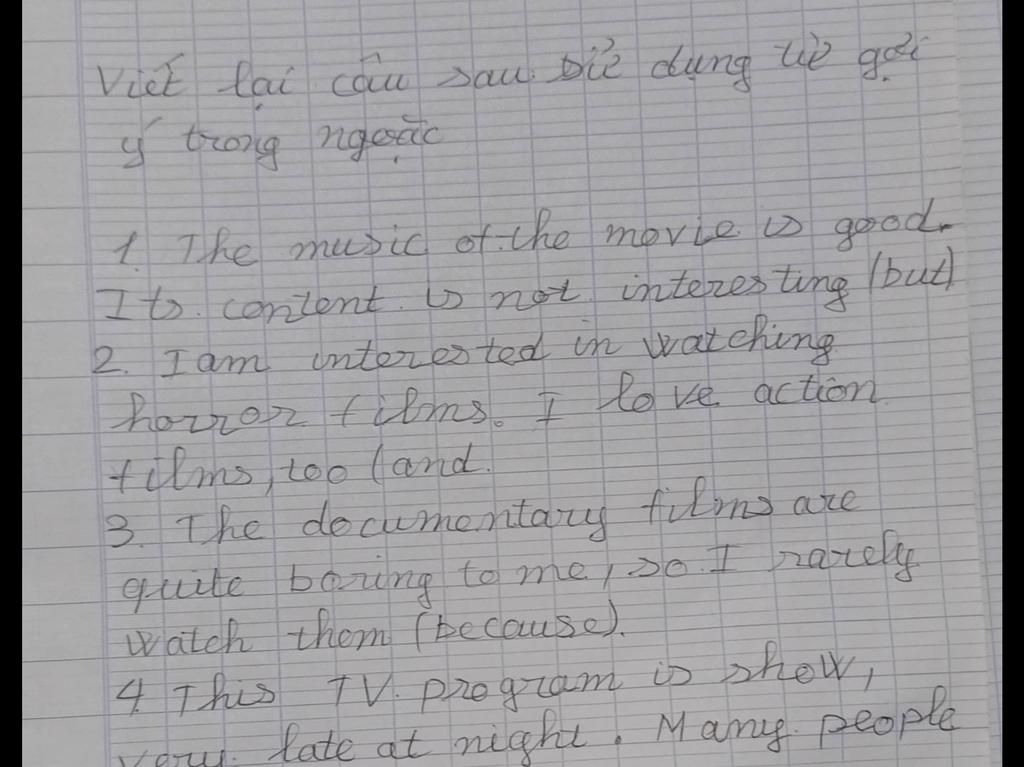 Viết lại câu sau sử dụng từ gợi
ý trong ngoặc
1. The music of the movie is good.
Its content is not interesting (but)
2. I am interested in watching
horror films. I love action
films, too (and.
3. The documentary films are
quite boring to me, so I rarely
watch them (because).
4 This TV program is show,
very late at night. Many people